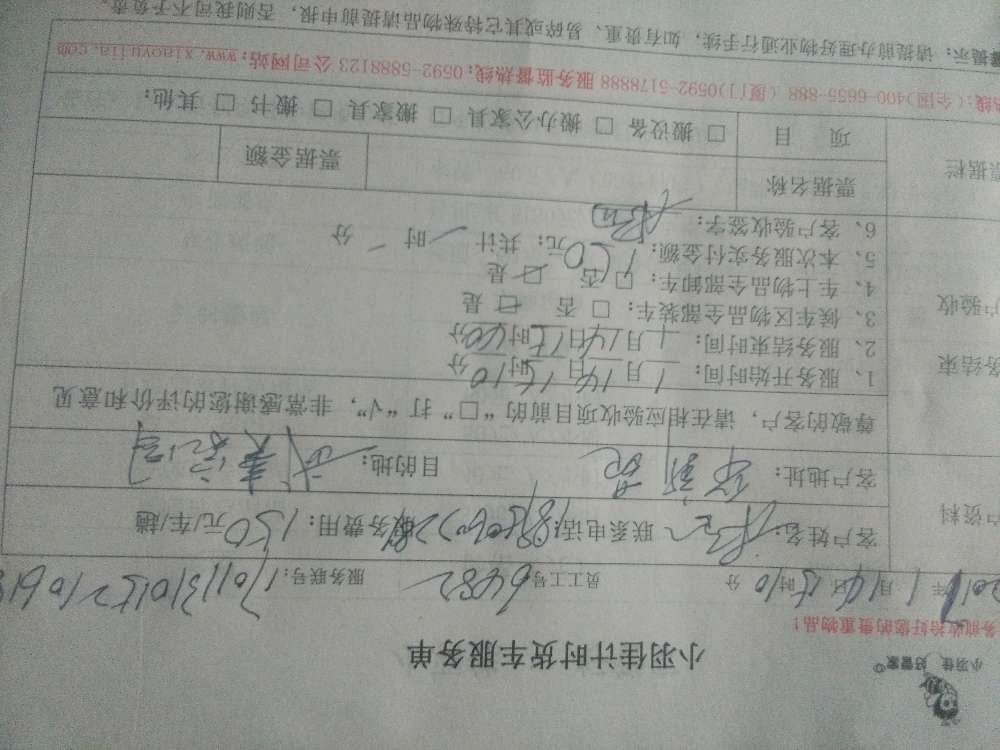 小羽佳 好管家
务前收拾好您的贵重物品！
小羽佳计时货车服务单
2017年1月14日15时10分 员工工号 6482 服务联号:
客户资料
客户姓名: 联系电话: 服务费用: 150元/车/趟
客户地址: 目的地:
尊敬的客户，请在相应验收项目前的“□”打“√”，非常感谢您的评价和意见
务结束
户验收
1、服务开始时间: 1月14日15时10分
2、服务结束时间: 1月14日15时40分
3、候车区物品全部装车: □ 否 □ 是
4、车上物品全部卸车: □ 否 □ 是
5、本次服务实付金额: 150元; 共计 时 分
6、客户验收签字:
票据栏
票据名称 票据金额
项 目 □ 搬设备 □ 搬办公家具 □ 搬家具 □ 搬书 □ 其他:
线:(全国)400-6655-888 (厦门)0592-5178888 服务监督热线:0592-5888123 公司网站:www.xiaoyujia.com
提示: 请提前办理好物业通行手续，如有贵重、易碎或其它特殊物品请提前申报，否则我司不予负责。